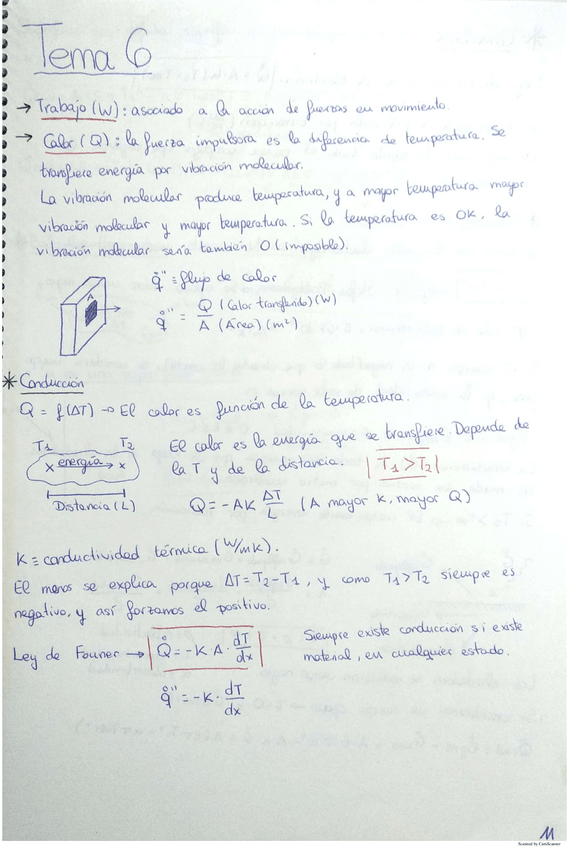 Tema 6
→ Trabajo (W): asociado a la acción de fuerzas en movimiento.
→ Calor (Q): la fuerza impulsora es la diferencia de temperatura. Se
transfiere energía por vibración molecular.
La vibración molecular produce temperatura, y a mayor temperatura mayor
vibración molecular y mayor temperatura. Si la temperatura es 0K, la
vibración molecular sería también 0 (imposible).
A
q̊'' ≡ flujo de calor
q̊'' = Q (Calor transferido) (W) / A (Área) (m²)
* Conducción
Q = f(ΔT) → El calor es función de la temperatura.
T1 T2
x energía → x
Distancia (L)
El calor es la energía que se transfiere Depende de
la T y de la distancia. | T1 > T2 |
Q = -AK ΔT/L (A mayor K, mayor Q)
K ≡ conductividad térmica (W/mK).
El menos se explica porque ΔT = T2 - T1, y como T1 > T2 siempre es
negativo, y así forzamos el positivo.
Ley de Fourier → Q̊ = -K·A· dT/dx
q̊'' = -K· dT/dx
Siempre existe conducción si existe
material, en cualquier estado.
M
Scanned by CamScanner